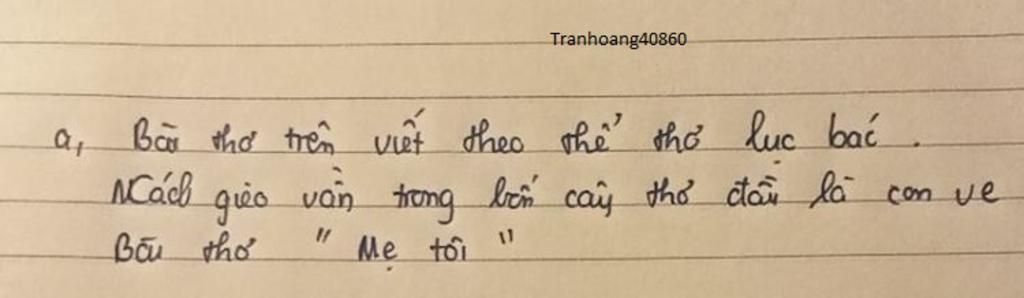 Tranhoang40860
a, Bài thơ trên viết theo thể thơ lục bác.
Cách gieo vần trong bốn cây thơ đầu là con ve
Bài thơ " Mẹ tôi "